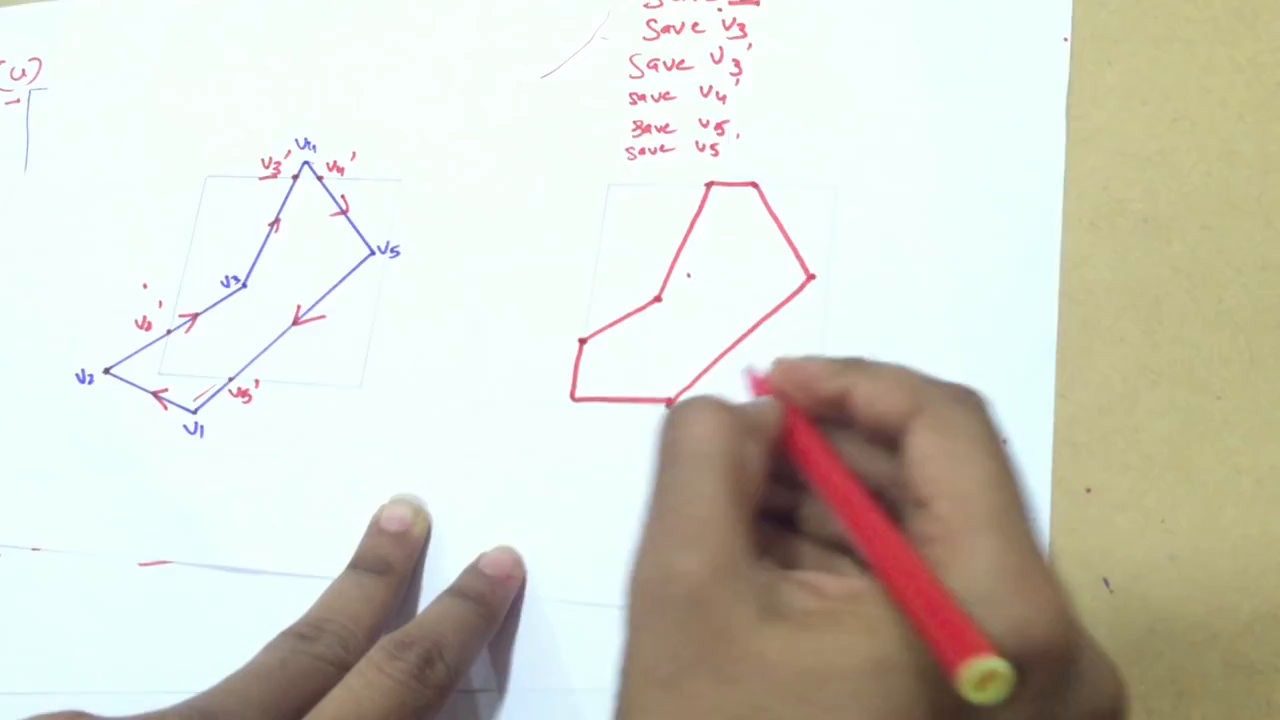 (u)
save v3
save v3'
save v4'
save v5
save v5'
v4
v3' v4'
v5
v3
v2'
v2
v5'
v1